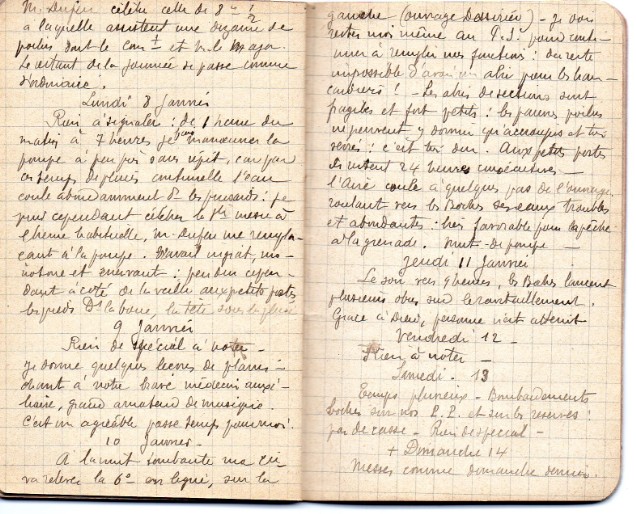 M. Dufeu célèbre celle de 8h 1/2
à laquelle assistent une dizaine de
poilus dont le Comt et le Major
Le restant de la journée se passe comme
d'ordinaire.
Lundi 8 Janvier
Rien à signaler : de 1 heure du
matin à 7 heures je manœuvre la
pompe à peu près sans répit, car par
ces temps de pluies continuelle l'eau
coule abondamment ds les puisards : je
puis cependant célébrer la Ste messe à
l'heure habituelle, m. Dufeu me rempla-
çant à la pompe. Travail ingrat, mo-
notone et énervant : peu dur cepen-
dant à côté de la veille aux petits postes
les pieds Ds la boue, la tête sous la pluie
9 Janvier
Rien de spécial à noter -
Je donne quelques leçons de plain-
chant à notre brave médecin auxi-
liaire, grand amateur de musique.
C'est un agréable passe temps pour moi.
10 Janvier -
A la nuit tombante ma Cie
va relever la 6e en ligne, sur la
gauche (ouvrage ) - Je dois
rester moi même au P.S. pour conti-
nuer à remplir mes fonctions : du reste
impossible d'avoir un abri pour les bran-
cardiers ! - Les abris de sections sont
fragiles et fort petits : les pauvres poilus
ne peuvent y dormir qu'accroupis et très
serrés : c'est très dur. Aux petits postes
ils restent 24 heures consécutives -
l'Aire coule à quelques pas de l'ouvrage
roulant vers les Boches ses eaux troubles
et abondantes : très favorable pour la pêche
à la grenade. Nuit de pompe -
Jeudi 11 Janvier
Le soir vers 9 heures, les Boches lancent
plusieurs obus sur le cantonnement.
Grâce à Dieu, personne n'est atteint
Vendredi 12 -
Rien à noter -
Samedi. 13
Temps pluvieux - Bombardements
boches sur nos P.P. et sur les réserves :
pas de casse - Rien de spécial -
+ Dimanche 14
Messes comme dimanche dernier.